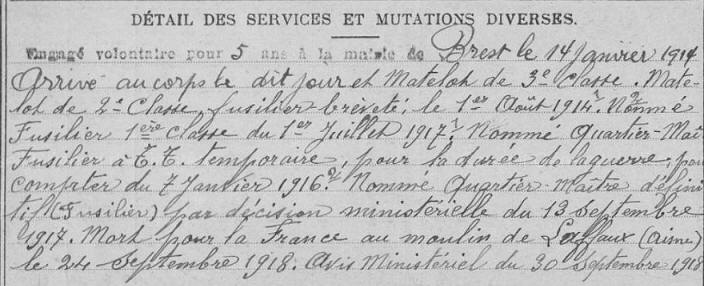 DÉTAIL DES SERVICES ET MUTATIONS DIVERSES.
Engagé volontaire pour 5 ans à la mairie de Brest le 14 janvier 1914
Arrivé au corps le dit jour et Matelot de 3e Classe. Mate-
lot de 2e Classe, fusilier breveté; le 1er Août 1914. Nommé
Fusilier 1ère Classe du 1er Juillet 1917. Nommé Quartier-Maî
Fusilier à T.T. temporaire, pour la durée de la guerre, pour
compter du 7 Janvier 1916. Nommé Quartier-Maître défini
tif (Fusilier) par décision ministérielle du 13 Septembre
1917. Mort pour la France au moulin de Laffaux (Aisne)
le 24 Septembre 1918. Avis Ministériel du 30 Septembre 1918